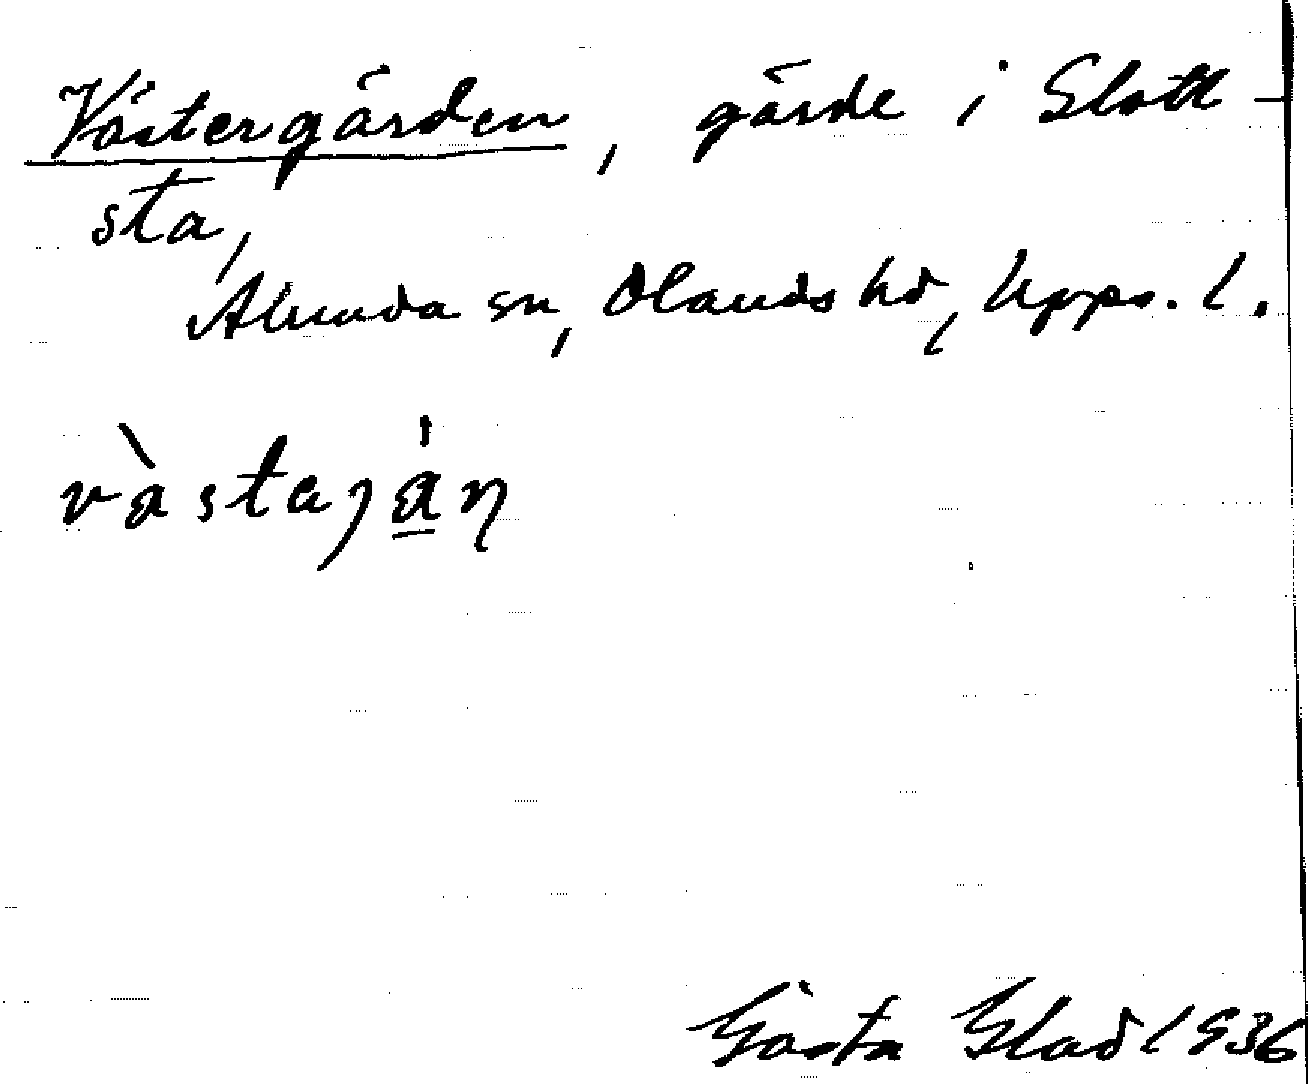 Västergärden, gärde i Slott-
sta,
Alunda sn, Olands hd, Upps. l.
västaján
Gösta Glad 1936